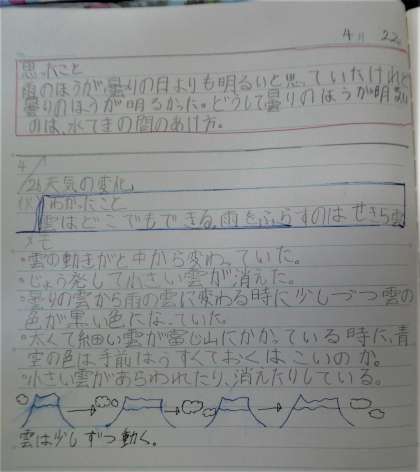 4月 22日
思ったこと
雨のほうが曇りの日よりも明るいと思っていたけれど
曇りのほうが明るかった。どうして曇りのほうが明るい
のは、水てきの間のあけ方。
4/26 天気の変化
わかったこと
雲はどこでもできる。雨をふらすのはせきらん雲
メモ
・雲の動きがと中から変わっていた。
・じょう発して小さい雲が消えた。
・曇りの雲から雨の雲に変わる時に少しづつ雲の
色が黒い色になっていた。
・太くて細い雲が富じ山にかかっている時に、青
空の色は手前はうすくておくはこいのか。
・小さい雲があらわれたり、消えたりしている。
雲は少しずつ動く。